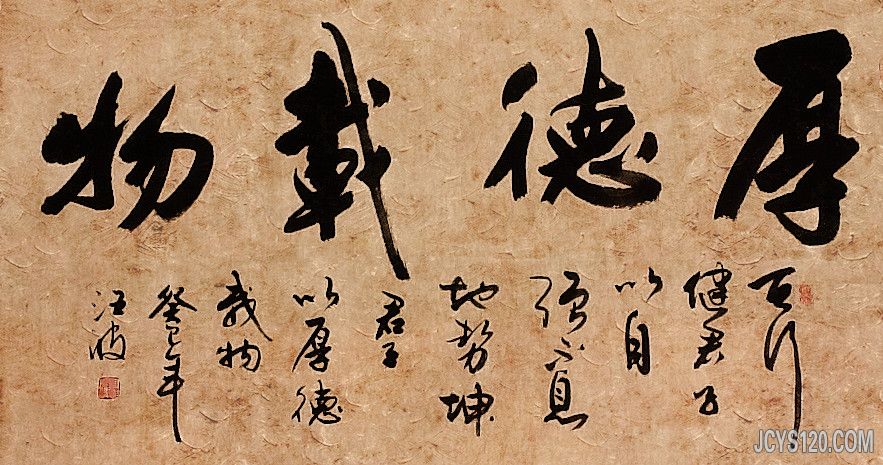 厚德載物
天行
健君子
以自
强不息
地势坤
君子
以厚德
载物
癸巳年
汪波
JCYS120.COM